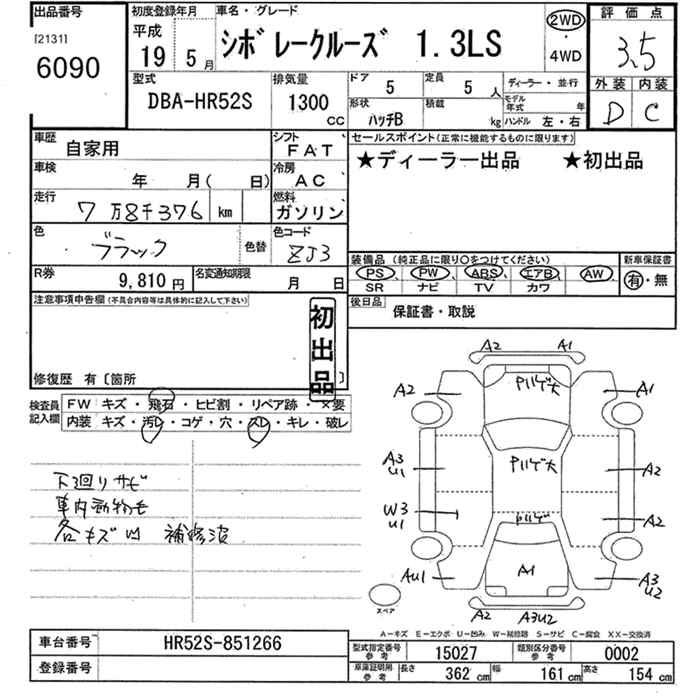 出品番号
[2131]
6090
初度登録年月
平成
19 5月
車名・グレード
シボレークルーズ 1.3LS
2WD
・
4WD
評価点
3.5
外装 内装
D C
型式
DBA-HR52S
排気量
1300
CC
ドア
5
定員
5 人
形状
ハッチB
積載
kg
ディーラー・並行
モデル年式 年
ハンドル 左・右
車歴
自家用
シフト
FAT
車検
年 月( 日)
冷房
AC
走行
7万8千376 km
燃料
ガソリン
色
ブラック
色替
色コード
ZJ3
R券
9,810 円
名変通知期限
月 日
セールスポイント(正常に機能するものに限ります)
★ディーラー出品 ★初出品
装備品(純正品に限り○をつけてください)
PS PW ABS エアB AW
SR ナビ TV カワ
新車保証書
有・無
後日品
保証書・取説
注意事項申告欄(不具合内容等は具体的に記入して下さい)
初出品
修復歴 有〔箇所 〕
検査員記入欄
FW キズ・飛石・ヒビ割・リペア跡・×要
内装 キズ・汚レ・コゲ・穴・スレ・キレ・破レ
下廻りサビ
車内動物毛
各キズ凹 補修波
A2 A1
A2 Pハゲ大 A1
A3
U1
Pハゲ大
A2
W3
U1
Pハゲ
A2
AU1
A1
A3
U2
A2 A3U2
スペア
A－キズ E－エクボ U－凹み W－補修跡 S－サビ C－腐食 XX－交換済
車台番号
HR52S-851266
登録番号
型式指定番号 参考
15027
類別区分番号 参考
0002
車庫証明用 参考
長さ 362 cm
幅 161 cm
高さ 154 cm